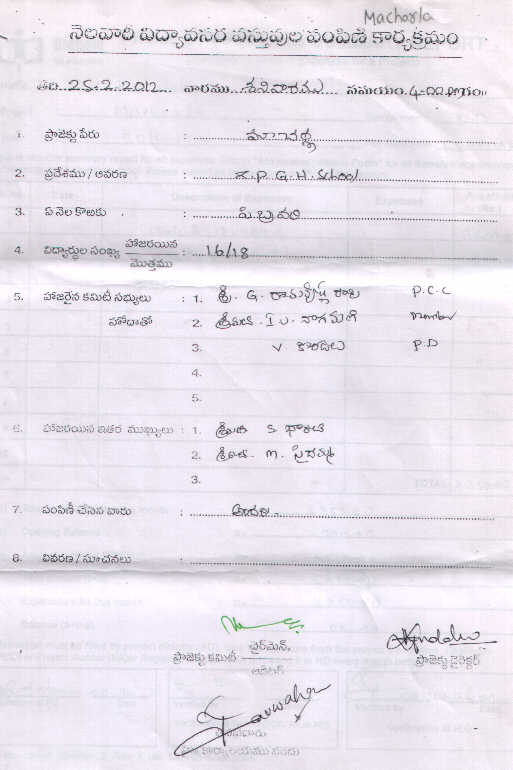 Macharla
నెలవారి విద్యావసర వస్తువుల పంపిణి కార్యక్రమం
తేది 25-2-2012 వారము శనివారము సమయం 4-00
1. ప్రాజెక్టు పేరు : మాచర్ల
2. ప్రదేశము / ఆవరణ : Z.P.G.H. School
3. ఏ నెల కొఱకు : ఫిబ్రవరి
4. విద్యార్థుల సంఖ్య హాజరయిన / మొత్తము : 16/18
5. హాజరైన కమిటీ సభ్యులు : 1. శ్రీ. G. P.C.C
హోదాతో 2. శ్రీమతి. నాగమణి member
3. V. P.D
4.
5.
6. హాజరయిన ఇతర ముఖ్యులు : 1. శ్రీమతి S. భారతి
2. శ్రీమతి. M.
3.
7. పంపిణీ చేసిన వారు : అందరు.
8. వివరణ / సూచనలు :
ప్రాజెక్టు కమిటీ చైర్‌మెన్,
ప్రాజెక్టు డైరెక్టర్
కార్యాలయము నందు